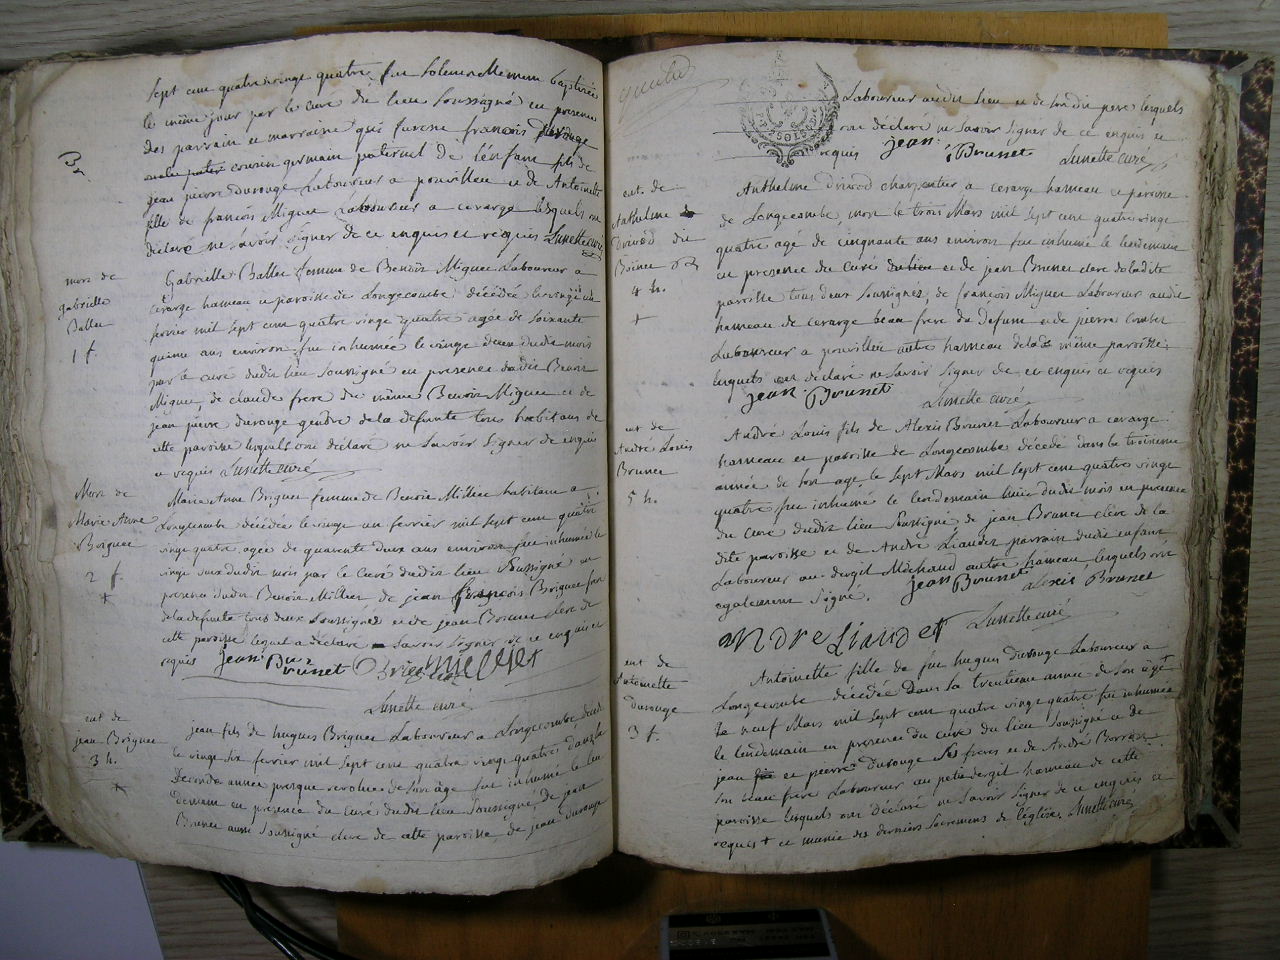 sept cent quatre vingt quatre, fut solemnellement baptisée
le même jour par le curé du lieu soussigné en presence
des parrain et marraine qui furent françois Durouge
cousin germain paternel de l'enfant fils de
jean pierre durouge Laboureur a et de Antoinette
fille de françois Miguet Laboureur a cerarge lesquels ont
déclaré ne sçavoir signer de ce enquis et requis Lunette curé
mort de
gabrielle
Ballet
1 f.
Gabrielle Ballet femme de Benoît Miguet Laboureur a
cerarge hameau et paroisse de Longecombe décédée le vingt un
fevrier mil sept cent quatre vingt quatre agée de soixante
quinze ans environ fut inhumée le vingt deux dudit mois
par le curé dudit lieu soussigné en presence dudit Benoit
Miguet, de claude frere du même Benoit Miguet et de
jean pierre durouge gendre de la defunte tous habitans de
cette paroisse lesquels ont déclaré ne sçavoir signer de enquis
et requis Lunette curé
Mort de
Marie Anne
Briguet
2 f.
+
Marie Anne Briguet femme de Benoit Millier habitant a
Longecombe décédée le vingt un fevrier mil sept cent quatre
vingt quatre, agée de quarente deux ans environ fut inhumée le
vingt deux dudit mois par le curé dudit lieu soussigné en
presence dudit Benoit Millier de jean françois Briguet frere
de la defunte tous deux soussignés et de jean Brunet clerc de
cette paroisse lequel a déclaré sçavoir signer de ce enquis et
requis jean Brunet Briguet millier
Lunette curé
ent. de
jean Briguet
3 h.
+
jean fils de hugues Briguet Laboureur a Longecombe décédé
le vingt six fevrier mil sept cent quatre vingt quatre dans la
seconde année presque revolue de son âge fut inhumé le len
demain en presence du curé dudit lieu soussigné, de jean
Brunet aussi soussigné clerc de cette paroisse, de jean durouge
Laboureur audit lieu et de son dit pere lesquels
ont déclaré ne sçavoir signer de ce enquis et
requis jean Brunet Lunette curé
ent. de
Anthelme
Drivod dit
4 h.
+
Anthelme Drivod charpentier a cerarge hameau et paroisse
de Longecombe, mort le trois Mars mil sept cent quatre vingt
quatre agé de cinquante ans environ fut inhumé le lendemain
en presence du curé du lieu et de jean Brunet clerc de ladite
paroisse tous deux soussignez, de françois Miguet Laboureur audit
hameau de cerarge beau frere du defunt et de pierre
Laboureur a autre hameau de la même paroisse
lesquels ont déclaré ne sçavoir signer de ce enquis et requis
jean Brunet Lunette curé
ent. de
André Louis
Brunet
5 h.
André Louis fils de Alexis Brunet Laboureur a cerarge
hameau et paroisse de Longecombe décédé dans la troisieme
année de son age le sept Mars mil sept cent quatre vingt
quatre fut inhumé le lendemain huit dudit mois en presence
du curé dudit lieu soussigné de jean Brunet clerc de la
dite paroisse et de André Liaudet parrain dudit enfant
Laboureur au dergit Michaud autre hameau, lesquels ont
egalement signé. jean Brunet Alexis Brunet
Andre Liaudet Lunette curé
ent. de
Antoinette
Durouge
3 f.
Antoinette fille de feu hugues Durouge Laboureur a
Longecombe décédée dans la trentieme année de son age +
le neuf Mars mil sept cent quatre vingt quatre fut inhumée
le lendemain en presence du curé du lieu soussigné et de
jean et pierre Durouge ses freres et de André
son beau frere Laboureur au petit dergit hameau de cette
paroisse lesquels ont déclaré ne sçavoir signer de ce enquis et
requis + et munie des derniers sacremens de l'église. Lunette curé